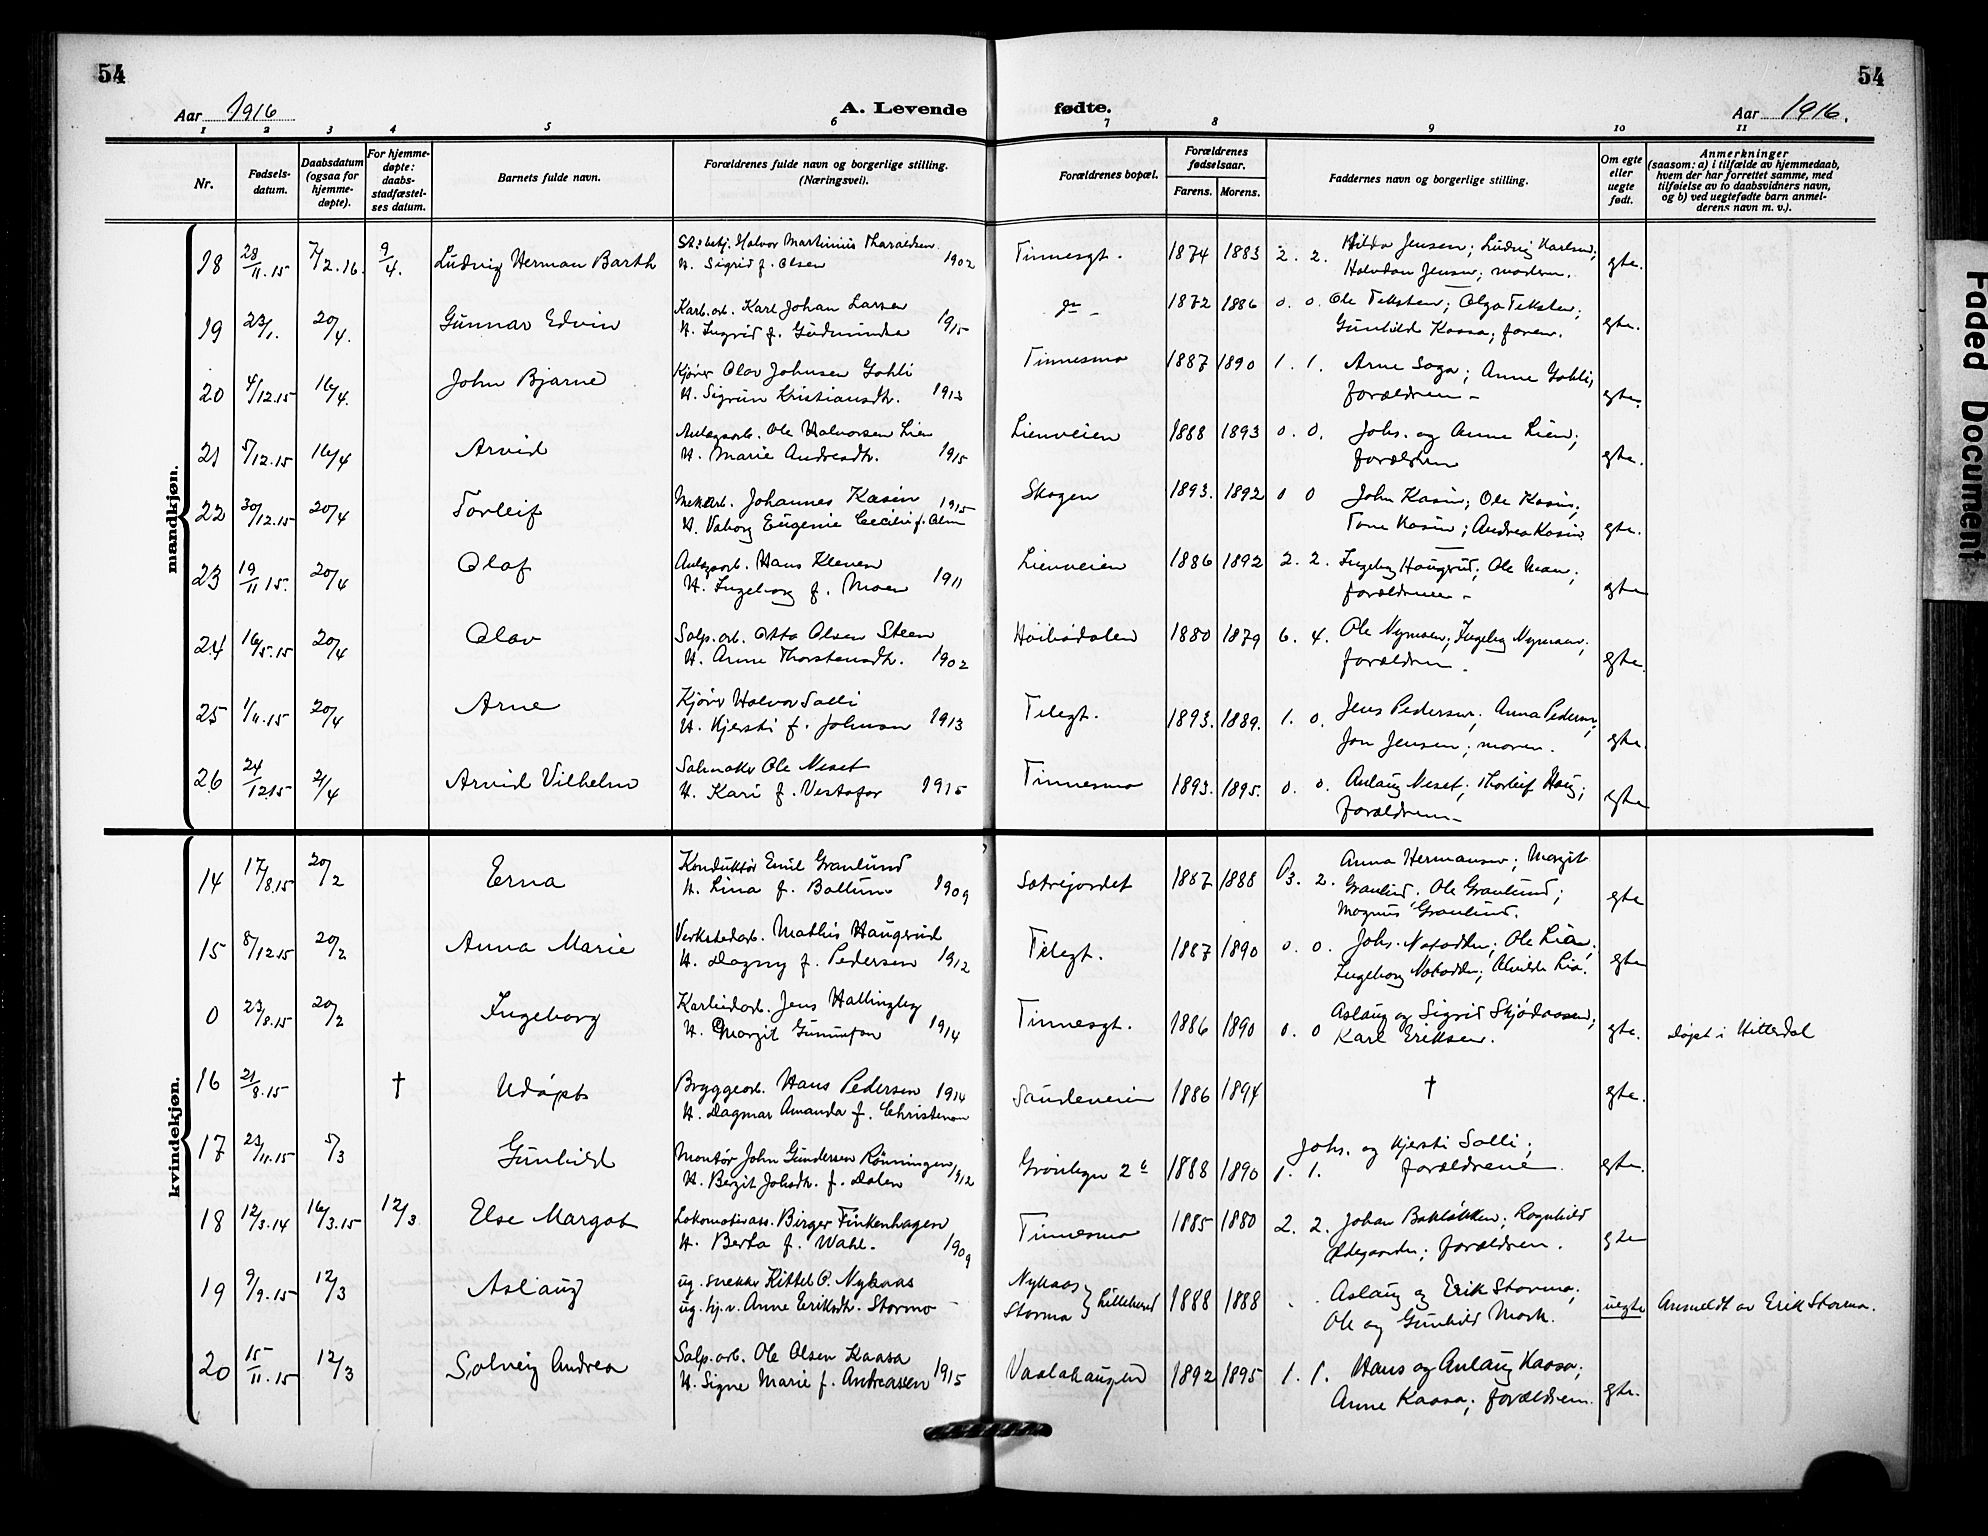 54
54
Aar 1916
A. Levende fødte.
Aar 1916.
1 2 3 4 5 6 7 8 9 10 11
Nr.
Fødsels-
datum.
Daabsdatum
(ogsaa for
hjemme-
døpte).
For hjemme-
døpte:
daabs-
stadfæstel-
ses datum.
Barnets fulde navn.
Forældrenes fulde navn og borgerlige stilling.
(Næringsvei).
Forældrenes bopæl.
Forældrenes
fødselsaar.
Farens. Morens.
Faddernes navn og borgerlige stilling.
Om egte
eller
uegte
født.
Anmerkninger
(saasom: a) i tilfælde av hjemmedaab,
hvem der har forrettet samme, med
tilføielse av to daabsvidners navn,
og b) ved uegtefødte barn anmel-
derens navn m. v.).
mandkjøn.
18 28/11.15 7/2.16. 9/4. Ludvig Herman Barth
Halvor Martinius Tharaldsen
H. Sigrid f. Olsen 1902
Tinnesgt. 1874 1883 2. 2. Hilda Jensen; Ludvig Karlsen;
Halvdan Jensen; moderen. egte.
19 23/1. 20/4. Gunnar Edvin
Karb.arb. Karl Johan Larsen
H. Ingrid f. Gudmundsen 1915
do - 1872 1886 0. 0. Ole Teksten; Olga Teksten;
Gunhild Kaasa; faren. egte.
20 4/12.15 16/4. John Bjarne
Kjører Olav Johnsen Gohli
H. Sigrun Kristiansdtr. 1913
Tinnesmo 1887 1890 1. 1. Arne Soga; Anne Gohli;
forældrene - egte.
21 5/12.15 16/4 Arvid
Anlægsarb. Ole Halvorsen Lien
H. Marie Andreasdtr. 1915
Lienveien 1888 1893 0. 0. Johs. og Anne Lien;
forældrene egte.
22 30/12.15 20/4 Torleif
Johannes Kasin 1915
H. Valborg Eugenie Cecilie f. Olsen
Skogen 1893. 1892 0 0 John Kasin; Ole Kasin;
Tone Kasin; Andrea Kasin egte.
23 19/11 15. 20/4 Olaf
Anlægsarb. Hans Kleven
H. Ingeborg f. Moen 1911
Lienveien 1886 1892 2. 2. Ingeborg Haugerud; Ole Moen;
forældrene - egte
24 16/5.15 20/4 Olav
Salp.arb. Otto Olsen Steen
H. Anne Thorstensdtr. 1902
Høibødalen 1880 1879 6. 4. Ole Nymoen; Ingeborg Nymoen;
forældrene. egte.
25 1/11.15 20/4 Arne
Kjører Halvor Solli
H. Kjersti f. Johnsen 1913
Telegt. 1893. 1889. 1. 0. Jens Pedersen; Anna Pedersen;
Jon Jensen; moren. egte.
26 24/12.15 21/4 Arvid Vilhelm
Salmaker Ole Neset
H. Kari f. Vestafor 1915
Tinnesmo 1893. 1895. 0. 0. Aslaug Neset; Thorleif Haug;
forældrene - egte
kvindekjøn.
14 17/8.15 20/2 Erna
Konduktør Emil Granlund
H. Lina f. Bollum 1909
Sætrejordet 1887 1888 3. 2. Anna Hermansen; Margit
Granlund. Ole Granlund;
Magnus Granlund. egte
15 8/12.15 20/2 Anna Marie
Verkstedarb. Mathis Haugerud
H. Dagny f. Pedersen 1912
Telegt. 1887 1890 0. 0. Johs. Notodden; Ole Lia;
Ingeborg Notodden; Alvilde Lia. egte
0 23/8.15 20/2 Ingeborg
Karbidarb. Jens Hallingby
H. Margit 1914
Tinnesgt. 1886 1890 0. 0 Aslaug og Sigrid Skjødaasen;
Karl Eriksen. egte. døpt i Hitterdal
16 21/8.15 † Udøpt
Bryggearb. Hans Pedersen 1914
H. Dagmar Amanda f. Christensen
Saudeveien 1886 1894 † egte.
17 23/11.15 5/3 Gunhild
Montør John Gundersen Rönningen 1912
H. Bergit Johsdtr. f. Dalen
Grönbyen 2b 1888 1890 1. 1. Johs. og Kjersti Solli;
forældrene. egte.
18 12/3.14 16/3.15 12/3 Else Margot
Lokomotivass. Birger Finkenhagen
H. Berta f. Wahl. 1909
Tinnesmo 1885 1880 2. 2. Johan Bakløkken; Ragnhild
Ødegaarden; forældrene. egte
19 9/9.15 12/3 Aslaug
ug. snekker Kittel O. Nykaas
ug. tj. v. Anne Eriksdtr. Stormo
Nykaas
Stormo } Lilleherad 1888 1888 Aslaug og Erik Stormo;
Ole og Gunhild Mork. uegte Anmeldt av Erik Stormo.
20 15/11.15 12/3 Solveig Andrea
Salp.arb. Ole Olsen Kaasa
H. Signe Marie f. Andreassen 1915
Vaalahaugen 1892 1895 1. 1. Hans og Aslaug Kaasa;
Anne Kaasa; forældrene. egte.
Faded Document